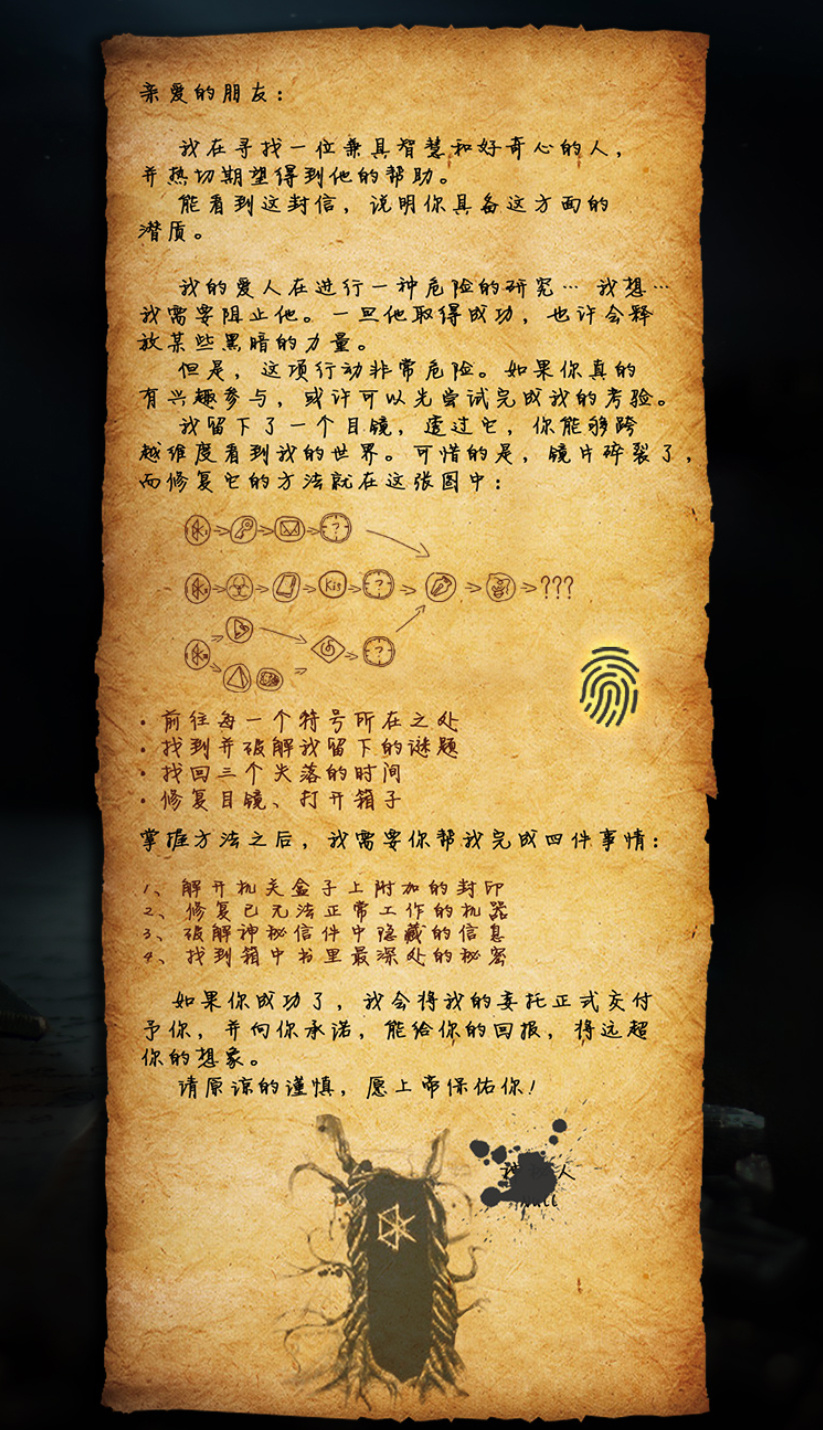 亲爱的朋友：
我在寻找一位兼具智慧和好奇心的人，
并热切期望得到他的帮助。
能看到这封信，说明你具备这方面的
潜质。
我的爱人在进行一种危险的研究… 我想…
我需要阻止他。一旦他取得成功，也许会释
放某些黑暗的力量。
但是，这项行动非常危险。如果你真的
有兴趣参与，或许可以先尝试完成我的考验。
我留下了一个目镜，透过它，你能够跨
越维度看到我的世界。可惜的是，镜片碎裂了，
而修复它的方法就在这张图中：
?
Kis ? ???
?
• 前往每一个符号所在之处
• 找到并破解我留下的谜题
• 找回三个失落的时间
• 修复目镜、打开箱子
掌握方法之后，我需要你帮我完成四件事情：
1、解开机关盒子上附加的封印
2、修复已无法正常工作的机器
3、破解神秘信件中隐藏的信息
4、找到箱中书里最深处的秘密
如果你成功了，我会将我的委托正式交付
予你，并向你承诺，能给你的回报，将远超
你的想象。
请原谅的谨慎，愿上帝保佑你！
人